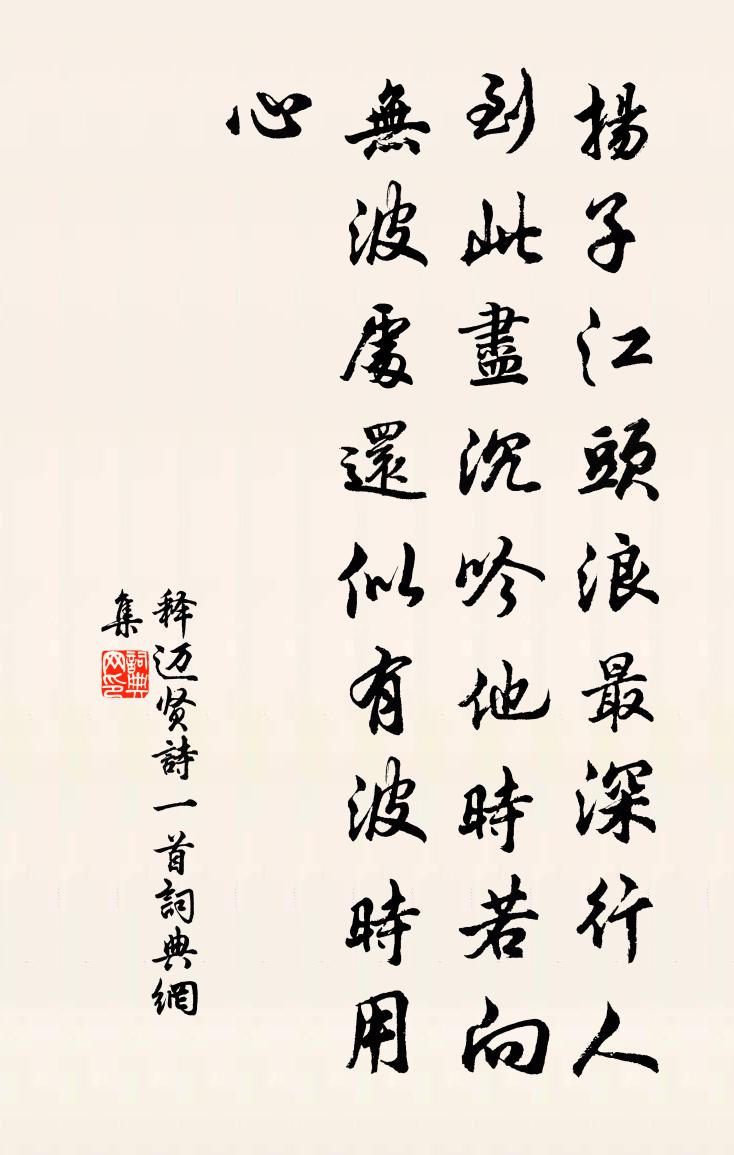 揚子江頭浪最深行人
到此盡沉吟他時若向
無波處還似有波時用
心
释迈贤詩一首詞典網
集
詞典網印